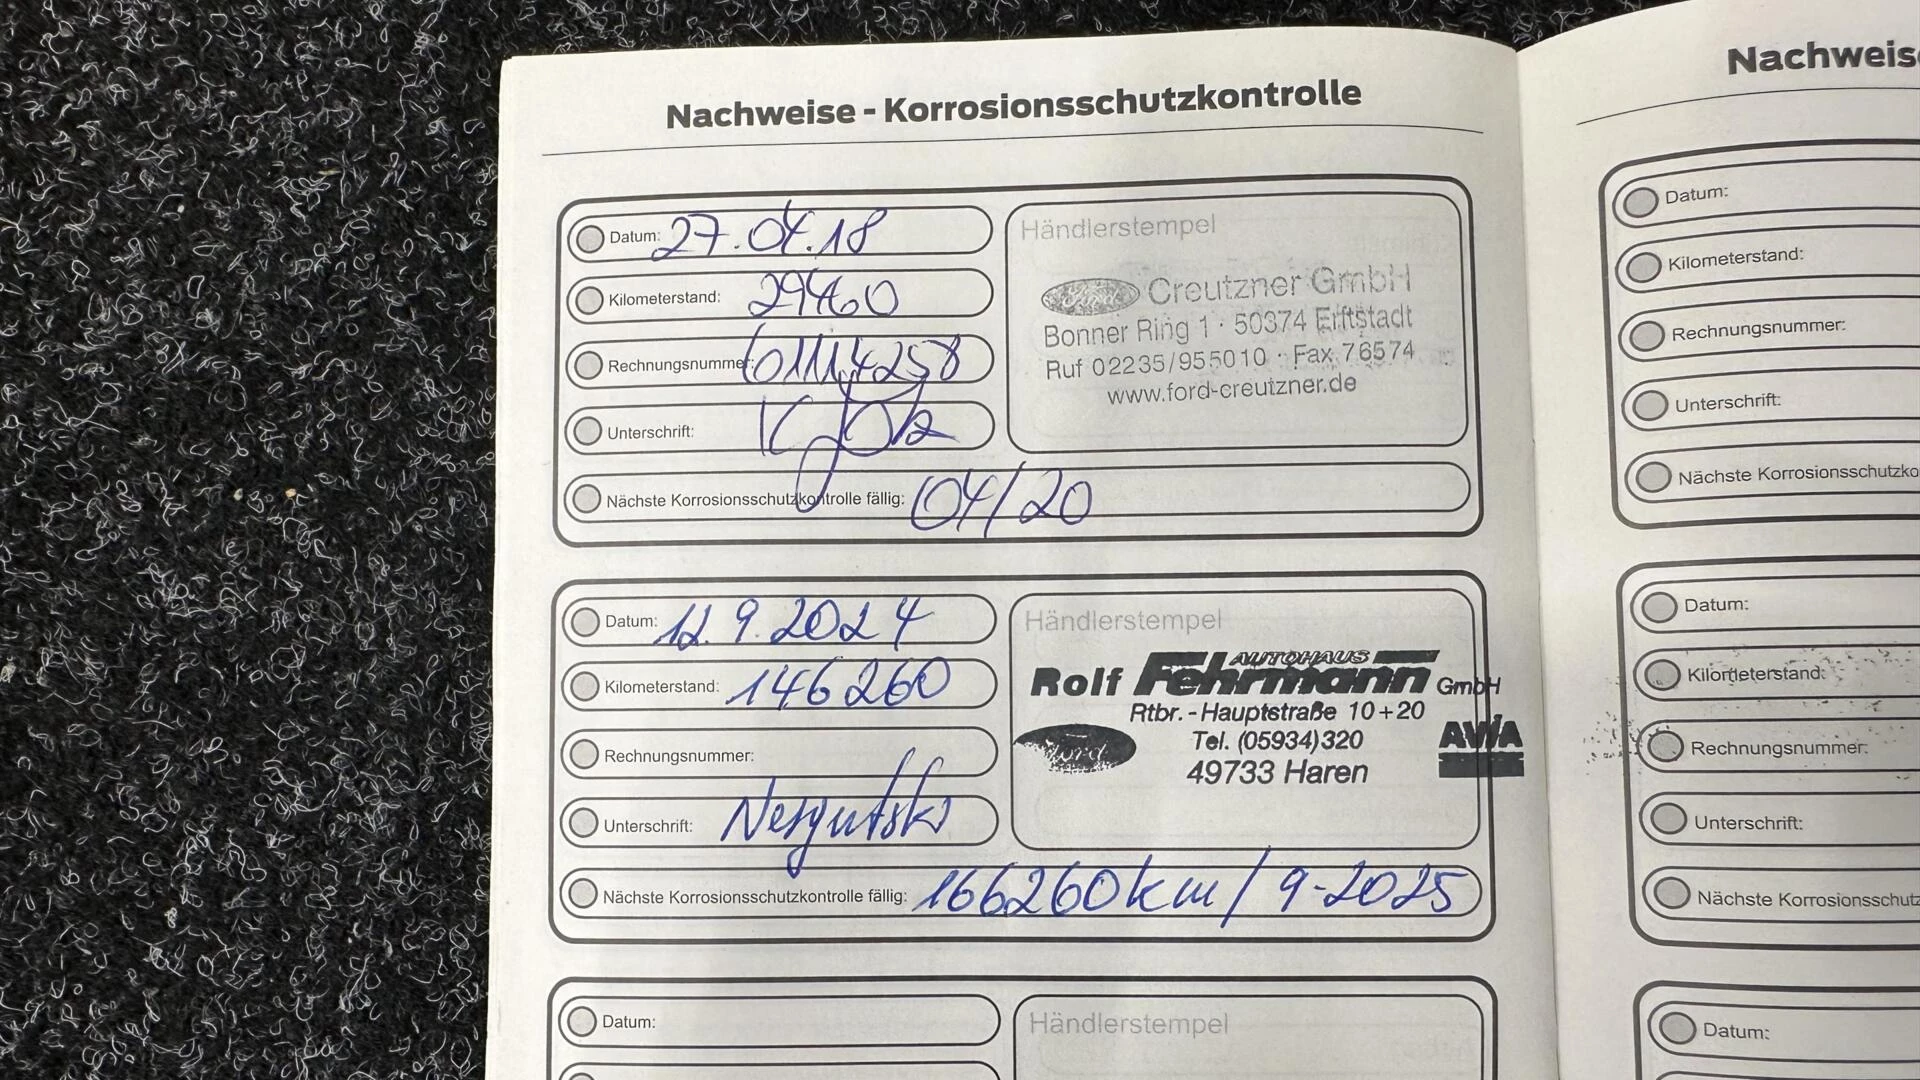 Nachweise - Korrosionsschutzkontrolle
Datum: 27.04.18
Kilometerstand: 29460
Rechnungsnummer:
Unterschrift:
Nächste Korrosionsschutzkontrolle fällig: 04/20
Händlerstempel
Ford Creutzner GmbH
Bonner Ring 1 · 50374 Erftstadt
Ruf 02235/955010 · Fax 76574
www.ford-creutzner.de
Datum: 12.9.2024
Kilometerstand: 146260
Rechnungsnummer:
Unterschrift:
Nächste Korrosionsschutzkontrolle fällig: 166260km/9-2025
Händlerstempel
AUTOHAUS
Rolf Fehrmann GmbH
Rtbr.-Hauptstraße 10+20
Ford Tel. (05934)320 AWA
49733 Haren
Datum:
Händlerstempel
Nachweise
Datum:
Kilometerstand:
Rechnungsnummer:
Unterschrift:
Nächste Korrosionsschutzko
Datum:
Kilometerstand:
Rechnungsnummer:
Unterschrift:
Nächste Korrosionsschutz
Datum: